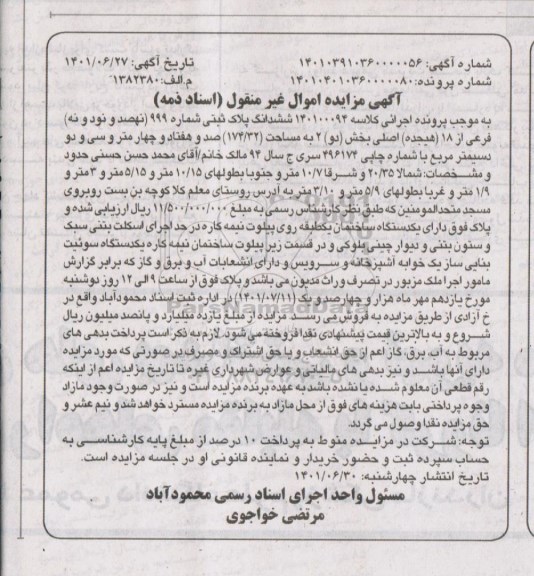 شماره آگهی: ۱۴۰۱۰۳۹۱۰۳۶۰۰۰۰۰۵۶
تاریخ آگهی: ۱۴۰۱/۰۶/۲۷
شماره پرونده: ۱۴۰۱۰۴۰۱۰۳۶۰۰۰۰۰۸۰
م.الف: ۱۳۸۲۳۸۰
آگهی مزایده اموال غیر منقول (اسناد ذمه)
به موجب پرونده اجرائی کلاسه ۱۴۰۱۰۰۹۴ ششدانگ پلاک ثبتی شماره ۹۹۹ (نهصد و نود و نه)
فرعی از ۱۸ (هیجده) اصلی بخش (دو) ۲ به مساحت (۱۷۴/۳۲) صد و هفتاد و چهار متر و سی و دو
دسیمتر مربع با شماره چاپی ۴۹۶۱۷۴ سری ج سال ۹۴ مالک خانم/آقای محمد حسن حسنی حدود
و مشخصات: شمالا ۲۰/۳۵ و شرقا ۱۰/۷ متر و جنوبا بطولهای ۱۰/۱۵ متر و ۵/۱۵ متر و ۳ متر و
۱/۹ متر و غربا بطولهای ۵/۹ متر و ۳/۱۰ متر به آدرس روستای معلم کلا کوچه بن بست روبروی
مسجد متحدالمومنین که طبق نظر کارشناس رسمی به مبلغ ۱۱/۵۰۰/۰۰۰/۰۰۰ ریال ارزیابی شده و
پلاک فوق دارای یکدستگاه ساختمان یکطبقه روی پیلوت نیمه کاره در حد اجرای اسکلت بتنی سبک
و ستون بتنی و دیوار چینی بلوکی و در قسمت زیر پیلوت ساختمان نیمه کاره یکدستگاه سوئیت
بنایی ساز یک خوابه آشپزخانه و سرویس و دارای انشعابات آب و برق و گاز که برابر گزارش
مامور اجرا ملک مزبور در تصرف وراث مدیون می باشد و پلاک فوق از ساعت ۹ الی ۱۲ روز دوشنبه
مورخ یازدهم مهر ماه هزار و چهارصد و یک (۱۴۰۱/۰۷/۱۱) در اداره ثبت اسناد محمودآباد واقع در
خ آزادی از طریق مزایده به فروش می رسد. مزایده از مبلغ یازده میلیارد و پانصد میلیون ریال
شروع و به بالاترین قیمت پیشنهادی نقدا فروخته می شود. لازم به ذکر است پرداخت بدهی های
مربوط به آب، برق، گاز اعم از حق انشعاب و یا حق اشتراک و مصرف در صورتی که مورد مزایده
دارای آنها باشد و نیز بدهی های مالیاتی و عوارض شهرداری غیره تا تاریخ مزایده اعم از اینکه
رقم قطعی آن معلوم شده یا نشده باشد به عهده برنده مزایده است و نیز در صورت وجود مازاد
وجوه پرداختی بابت هزینه های فوق از محل مازاد به برنده مزایده مسترد خواهد شد و نیم عشر و
حق مزایده نقدا وصول می گردد.
توجه: شرکت در مزایده منوط به پرداخت ۱۰ درصد از مبلغ پایه کارشناسی به
حساب سپرده ثبت و حضور خریدار و نماینده قانونی او در جلسه مزایده است.
تاریخ انتشار چهارشنبه: ۱۴۰۱/۰۶/۳۰
مسئول واحد اجرای اسناد رسمی محمودآباد
مرتضی خواجوی